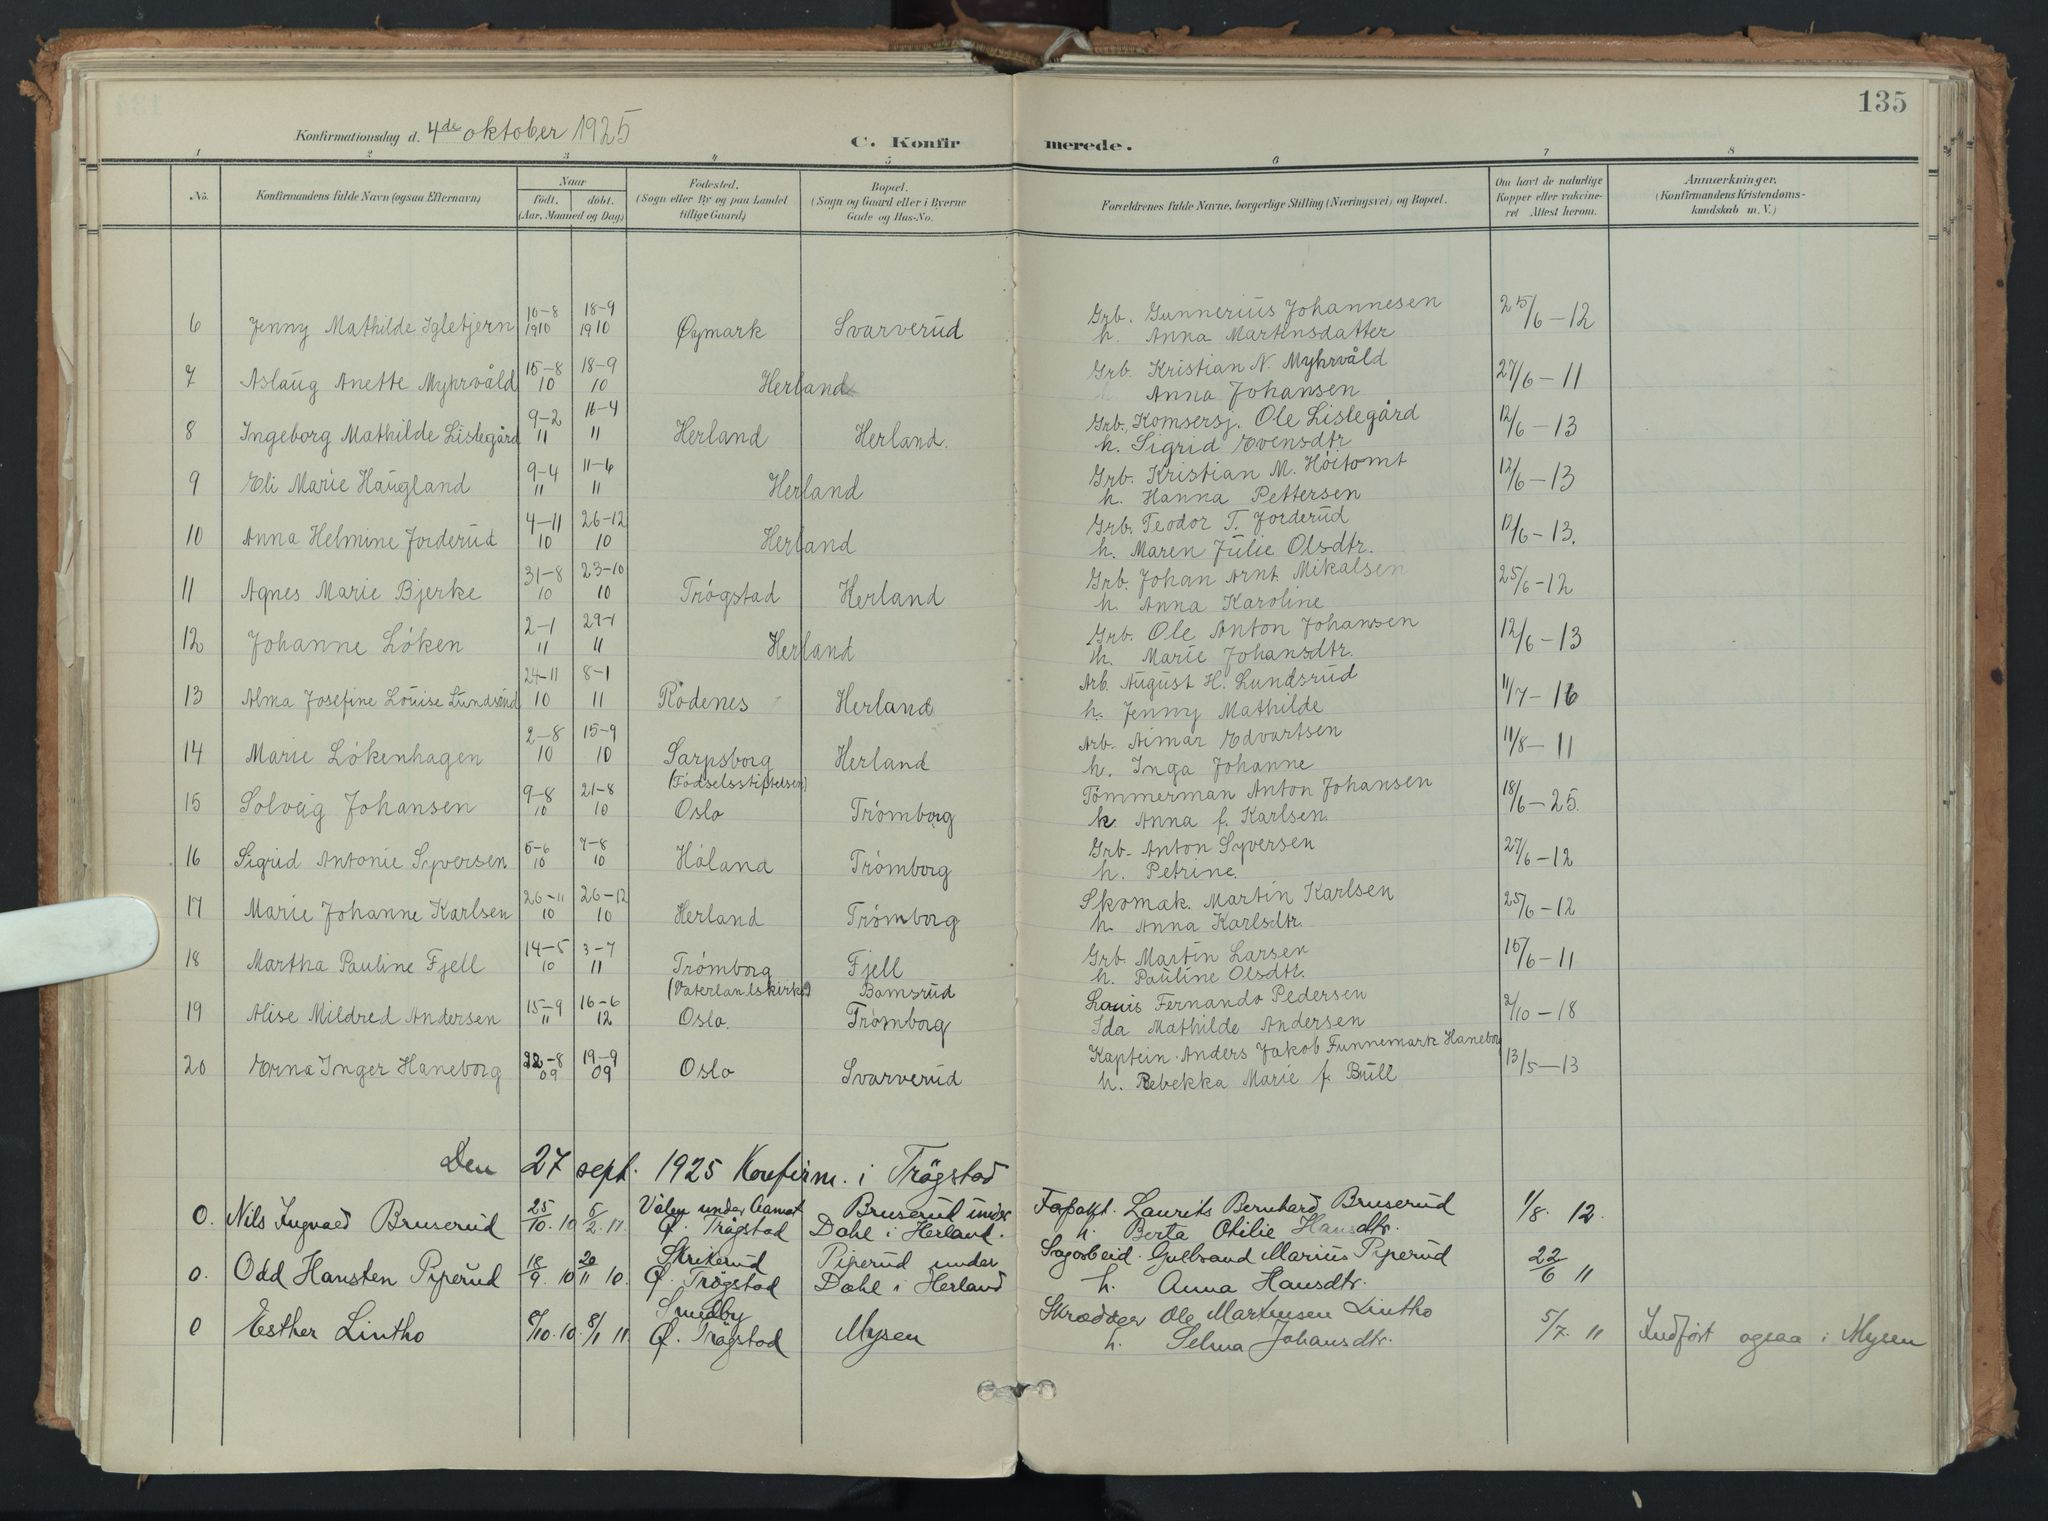 135
Konfirmationsdag d. 4de oktober 1925
C. Konfirmerede.
1 2 3 4 5 6 7 8
No. Konfirmandens fulde Navn (ogsaa Efternavn) Naar født. døbt. (Aar, Maaned og Dag) Fødested. (Sogn eller By og paa Landet tillige Gaard.) Bopæl. (Sogn og Gaard eller i Byerne Gade og Hus-No. Forældrenes fulde Navne, borgerlige Stilling (Næringsvei) og Bopæl. Om havt de naturlige Kopper eller vakcineret Attest herom. Anmærkninger. (Konfirmandens Kristendomskundskab m. V.)
6 Jenny Mathilde Igletjern 10-8 1910 18-9 1910 Øymark Svarverud Grb. Gunnerius Johannesen 25/6-12
h. Anna Martinsdatter
7 Aslaug Anette Myhrvåld 15-8 10 18-9 10 Herland Grb. Kristian N. Myhrvåld 27/6-11
Anna Johansen
8 Ingeborg Mathilde Listegård 9-2 11 16-4 11 Herland Herland. Grb. Komsersj. Ole Listegård 12/6-13
h. Sigrid Evensdtr
9 Eli Marie Haugland 9-4 11 11-6 11 Herland Grb. Kristian M. Höitomt 12/6-13
h. Hanna Pettersen
10 Anna Helmine Jorderud 4-11 10 26-12 10 Herland Grb. Teodor T. Jorderud 12/6-13.
h. Maren Julie Olsdtr.
11 Agnes Marie Bjerke 31-8 10 23-10 10 Trógstad Herland Grb. Johan Arnt Mikalsen 25/6-12
h. Anna Karoline
12 Johanne Lóken 2-1 11 29-1 11 Herland Grb. Ole Anton Johansen 12/6-13
h. Marie Johansdtr.
13 Alma Josefine Louise Lundsrud 24-11 10 8-1 11 Rödenes Herland Arb. August H. Lundsrud 11/7-16
h. Jenny Mathilde
14 Marie Lókenhagen 2-8 10 15-9 10 Sarpsborg Herland Arb. Aimar Edvartsen 11/8-11
h. Inga Johanne
15 Solveig Johansen 9-8 10 21-8 10 (Födselsstiftelsen) Oslo Trómborg Tömmerman Anton Johansen 18/6-25.
h. Anna f. Karlsen.
16 Sigrid Antonie Syversen 5-6 10 7-8 10 Hóland Trómborg Grb. Anton Syversen 27/6-12
h. Petrine.
17 Marie Johanne Karlsen 26-11 10 26-12 10 Herland Trómborg Skomak. Martin Karlsen 25/6-12
h. Anna Karlsdtr.
18 Martha Pauline Fjell 14-5 10 3-7 11 Trómborg Fjell Grb. Martin Larsen 15/6-11
h. Pauline Olsdtr.
19 Alise Mildred Andersen 15-9 11 16-6 12 (Vaterlandskirke) Oslo. Bamsrud Trómborg Louis Fernando Pedersen 2/10-18
Ida Mathilde Andersen
20 Erna Inger Haneborg 22-8 09 19-9 09 Oslo Svarverud Kaptein. Anders Jakob Funnemark Haneborg 13/5-13
h. Rebekka Marie f. Bull
Den 27 sept. 1925 Konfirm. i Trögstad
0. Nils Ingvald Bruserud 25/10. 10 5/2. 11. Ø. Trögstad Bruserud under Dahl i Herland. Laurits Bernhard Bruserud 1/8. 12.
h. Berta Otilie Hansdtr.
0. Odd Hansten Piperud 18/9. 10 20/11 10. Skrikerud Ø. Trögstad Piperud under Dahl i Herland Sagarbeid. Gulbrand Marius Piperud 22/6 11
h. Anna Hansdtr.
0 Esther Lintho 8/10. 10. 8/1 11. Smedby Ø. Trögstad Mysen Skrædder Ole Martinsen Lintho 5/7. 11 Indført ogsaa i Mysen
h. Selma Johansdtr.